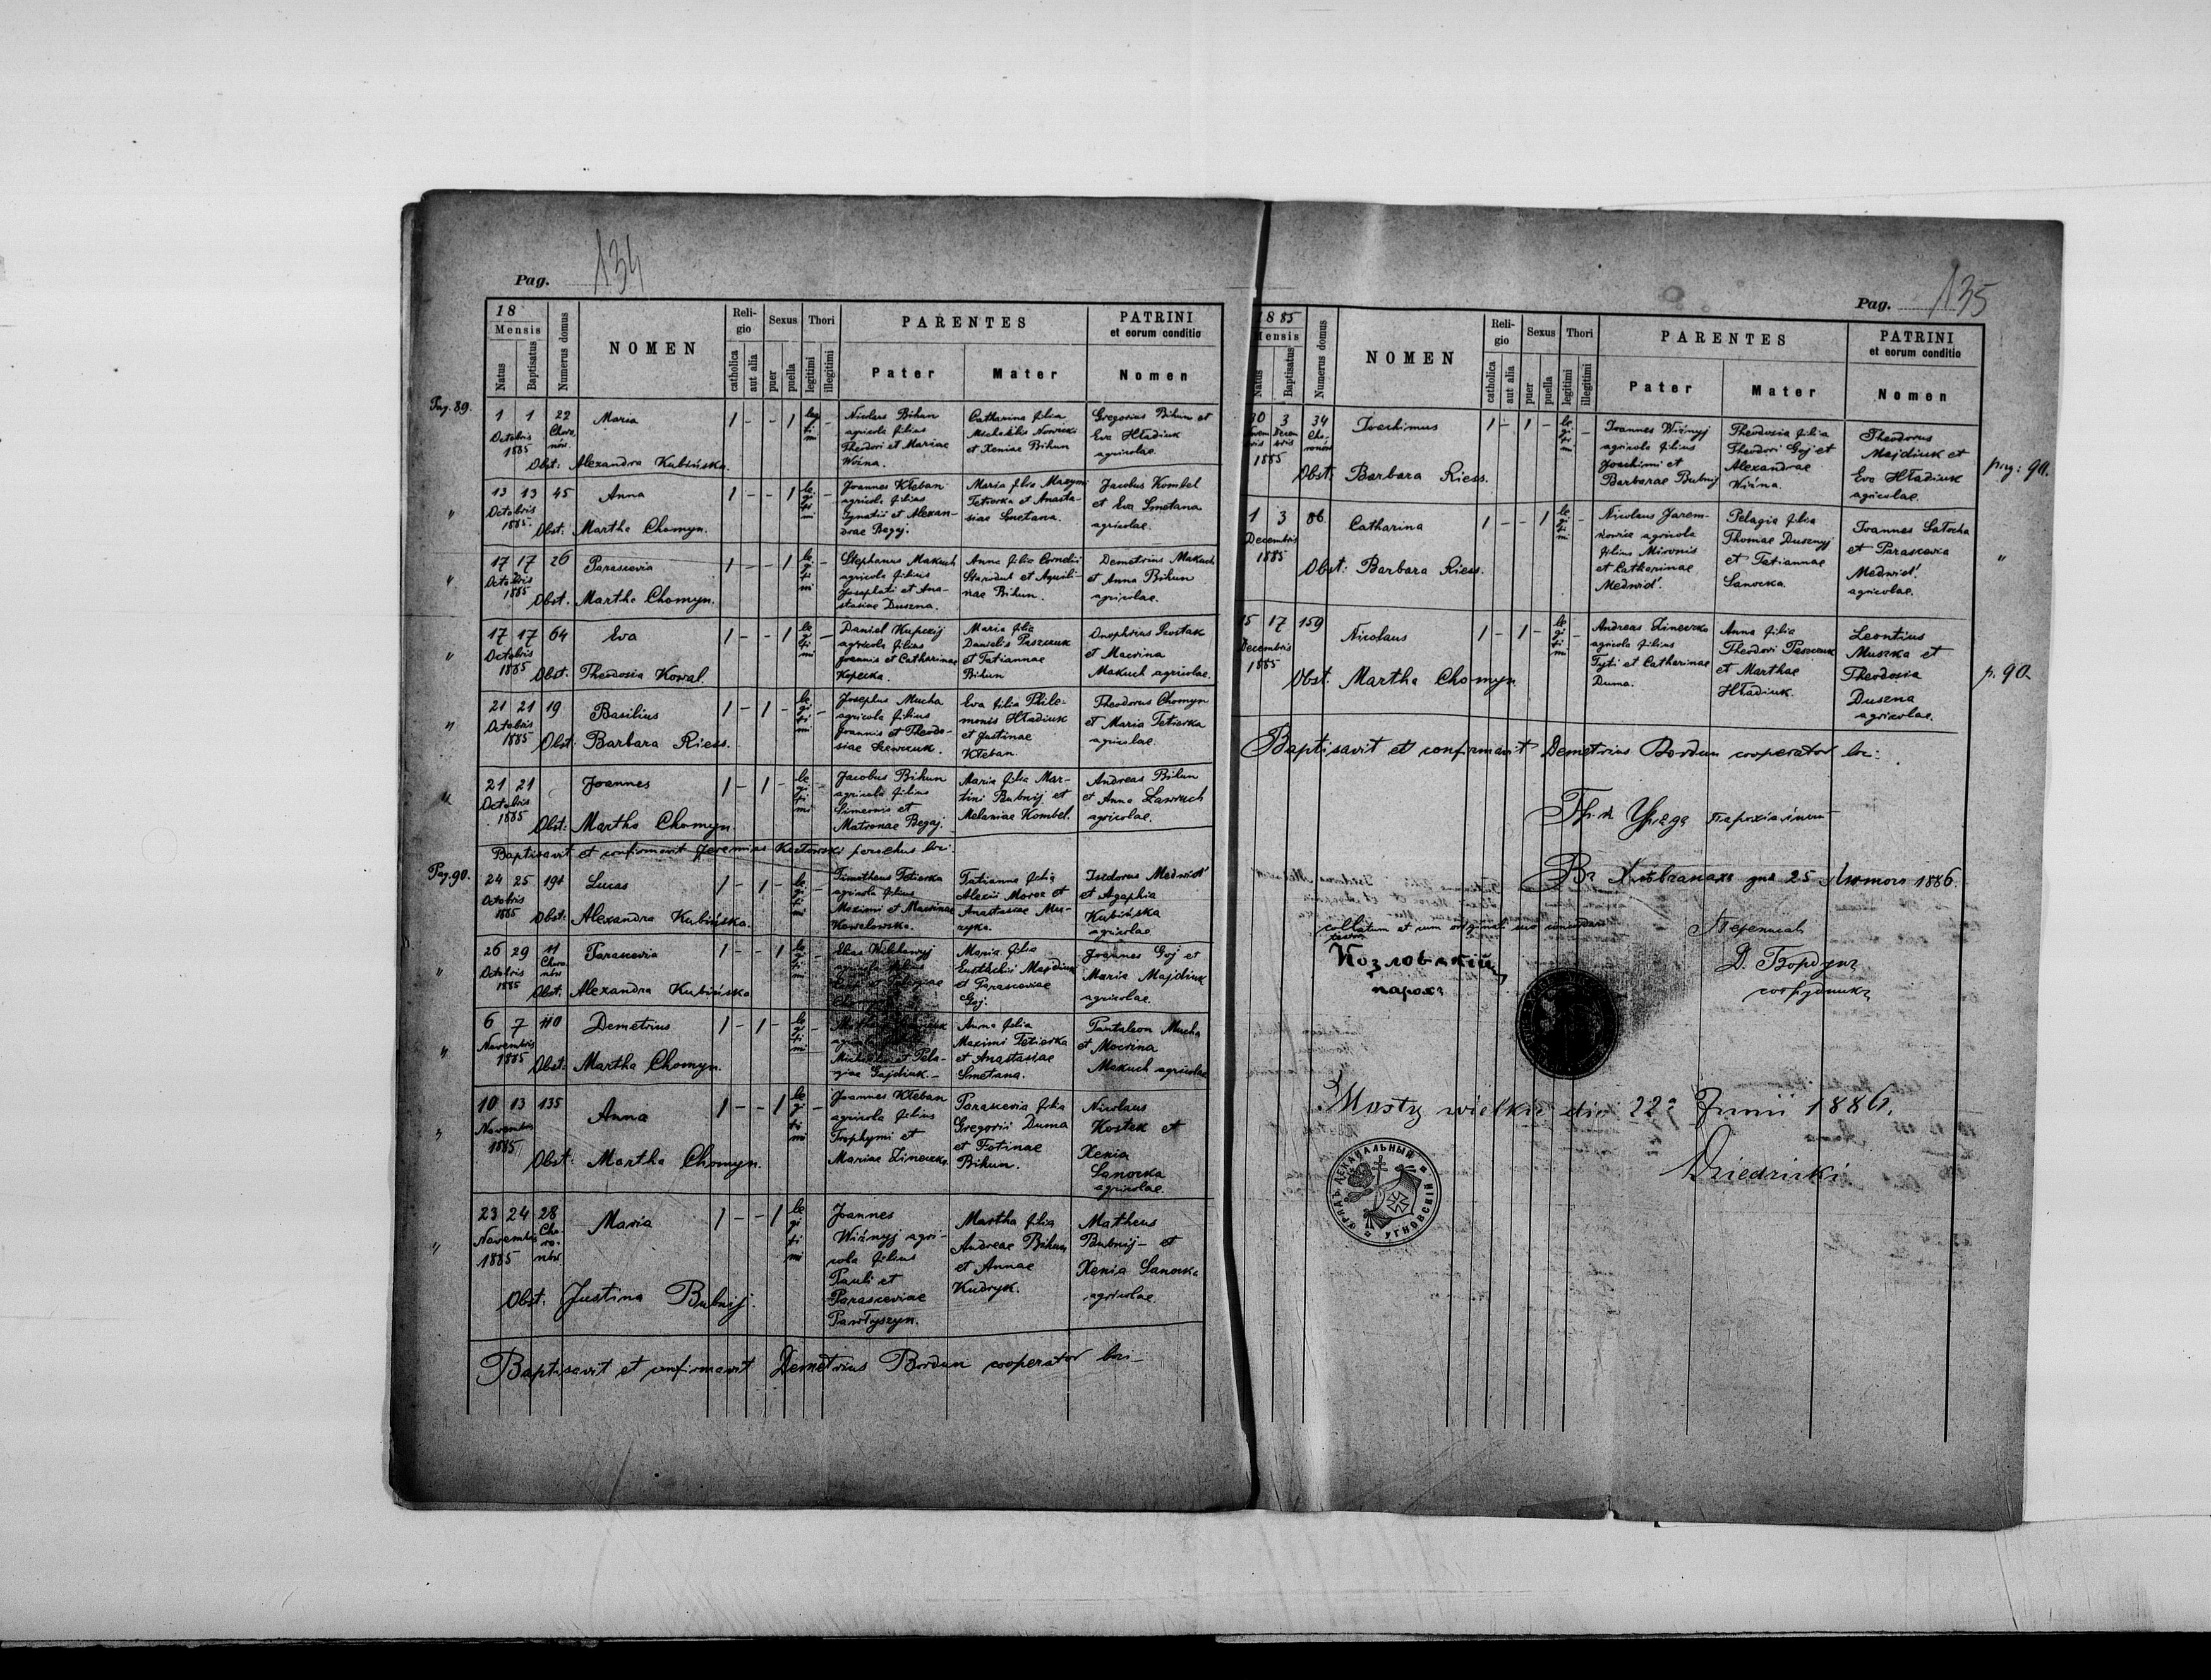 Pag. 134
18
Mensis
Natus
Baptisatus
Numerus domus
NOMEN
Religio
catholica
aut alia
Sexus
puer
puella
Thori
legitimi
illegitimi
PARENTES
Pater
Mater
PATRINI
et eorum conditio
Nomen
Pag. 89.
1 1 22 Maria 1 - - 1
Octobris
1885
Obst: Alexandra Kubińska.
Nicolaus Bihun
agricola filius
Theodori et Mariae
Wiźna.
Catharina filia
Michaelis Nowicki
et Xeniae Bihun
Gregorius Bihun et
Eva Hładiuk
agricolae.
" 13 13 45 Anna 1 - - 1 legitimi -
Octobris
1885.
Obst: Martha Chomyn.
Joannes Kleban
agricola filius
Ignatii et Alexan-
drae Begaj.
Maria filia Maxymi
Tetiorka et Anasta-
siae Smetana.
Jacobus Kombel
et Eva Smetana
agricolae.
" 17 17 26 Parascevia 1 - - 1 legitimi -
Octobris
1885
Obst. Martha Chomyn.
Stephanus Makuch
agricola filius
Josaphati et Ana-
stasiae Duszna.
Anna filia Cornelii
Starodub et Aquili-
nae Bihun.
Demetrius Makuch
et Anna Bihun
agricolae.
" 17 17 64 Eva 1 - - 1 legitimi -
Octobris
1885
Obst: Theodosia Kowal.
Daniel Kupczij
agricola filius
Joannis et Catharinae
Kopecka.
Maria filia
Danielis Paszczuk
et Tatiannae
Bihun
Onophrius Szostak
et Macrina
Makuch agricolae.
" 21 21 19 Basilius 1 - 1 - legitimi -
Octobris
1885
Obst: Barbara Riess.
Josephus Mucha
agricola filius
Joannis et Theodo-
siae Szewczuk.
Eva filia Phile-
monis Hładiuk
et Justinae
Kleban.
Theodorus Chomyn
et Maria Tetiorka
agricolae.
" 21 21 Joannes 1 - 1 - legitimi -
Octobris
1885
Obst: Martha Chomyn.
Jacobus Bihun
agricola filius
Simeonis et
Matronae Begaj.
Maria filia Mar-
tini Bubnij et
Melaniae Kombel.
Andreas Bihun
et Anna Ławruch
agricolae.
Baptisavit et confirmavit Jeremias Kozłowski parochus loci.
Pag. 90.
24 25 191 Lucas 1 - 1 - legitimi -
Octobris
1885
Obst: Alexandra Kubińska.
Timotheus Tetiorka
agricola filius
Maximi et Macrinae
Kowalowska.
Tatianna filia
Alexii Moroz et
Anastasiae Mu-
zyka.
Isidorus Medwid'
et Agaphia
Kubińska
agricolae.
" 26 29 11 Parascevia 1 - - 1 legitimi -
Octobris
1885
Obst. Alexandra Kubińska
Elias
agricola filius
Maria filia
Eustachii Majdiuk
et Parasceviae
Goj.
Joannes Goj et
Maria Majdiuk
agricolae.
" 6 7 110 Demetrius 1 - 1 - legitimi -
Novembris
1885
Obst: Martha Chomyn.
Michaelis et Pela-
giae Gajdiuk.-
Anna filia
Maximi Tetiorka
et Anastasiae
Smetana.
Pantaleon Mucha
et Macrina
Makuch agricolae
" 10 13 135 Anna 1 - - 1 legitimi -
Novembris
1885
Obst: Martha Chomyn.
Joannes Kleban
agricola filius
Trophymi et
Mariae Zineczko.
Parascevia filia
Gregorii Duma
et Fotinae
Bihun.
Nicolaus
Kostek et
Xenia
Sanocka
agricolae.
" 23 24 28 Maria 1 - - 1 legitimi
Novembris
1885
Obst. Justina Bubnij.
Joannes
Wiźnyj agri-
cola filius
Pauli et
Parasceviae
Pawłyszyn.
Martha filia
Andreae Bihun
et Annae
Kudryk.
Matheus
Bubnij - et
Xenia Sanocka
agricolae.
Baptisavit et confirmavit Demetrius Bordun cooperator loci -
Pag. 135
1885
Mensis
Natus
Baptisatus
Numerus domus
NOMEN
Religio
catholica
aut alia
Sexus
puer
puella
Thori
legitimi
illegitimi
PARENTES
Pater
Mater
PATRINI
et eorum conditio
Nomen
30 3 34 Joachimus 1 - 1 - legitimi -
1885
Obst: Barbara Riess.
Joannes Wiźnyj
agricola filius
Joachimi et
Barbarae Bubnij
Theodosia filia
Theodori Goj et
Alexandrae
Wiźna.
Theodorus
Majdiuk et
Eva Hładiuk
agricolae.
pag: 90.
1 3 86 Catharina 1 - - 1 legitimi -
Decembris
1885
Obst: Barbara Riess.
Nicolaus Jarem-
kowicz agricola
filius Mironis
et Catharinae
Medwid'.
Pelagia filia
Thomae Dusznyj
et Tatiannae
Sanocka.
Joannes Satocha
et Parascevia
Medwid'.
agricolae.
"
15 17 159 Nicolaus 1 - 1 - legitimi -
Decembris
1885
Obst. Martha Chomyn
Andreas Zineczko
agricola filius
Tyti et Catharinae
Duma.
Anna filia
Theodori Paszczuk
et Marthae
Hładiuk.
Leontius
Muszka et
Theodosia
Duszna
agricolae.
p. 90.
Baptisavit et confirmavit Demetrius Bordun cooperator loci:
Уряда
1886.
collatum et cum originali suo
Козловскій
парохъ
Д. Бордунъ
сотрудникъ
Mosty wielkie die 22 Junii 1886.
Dziedzicki
УРЯДЪ ДЕКАНАЛЬНЫЙ
УГНОВСКІЙ